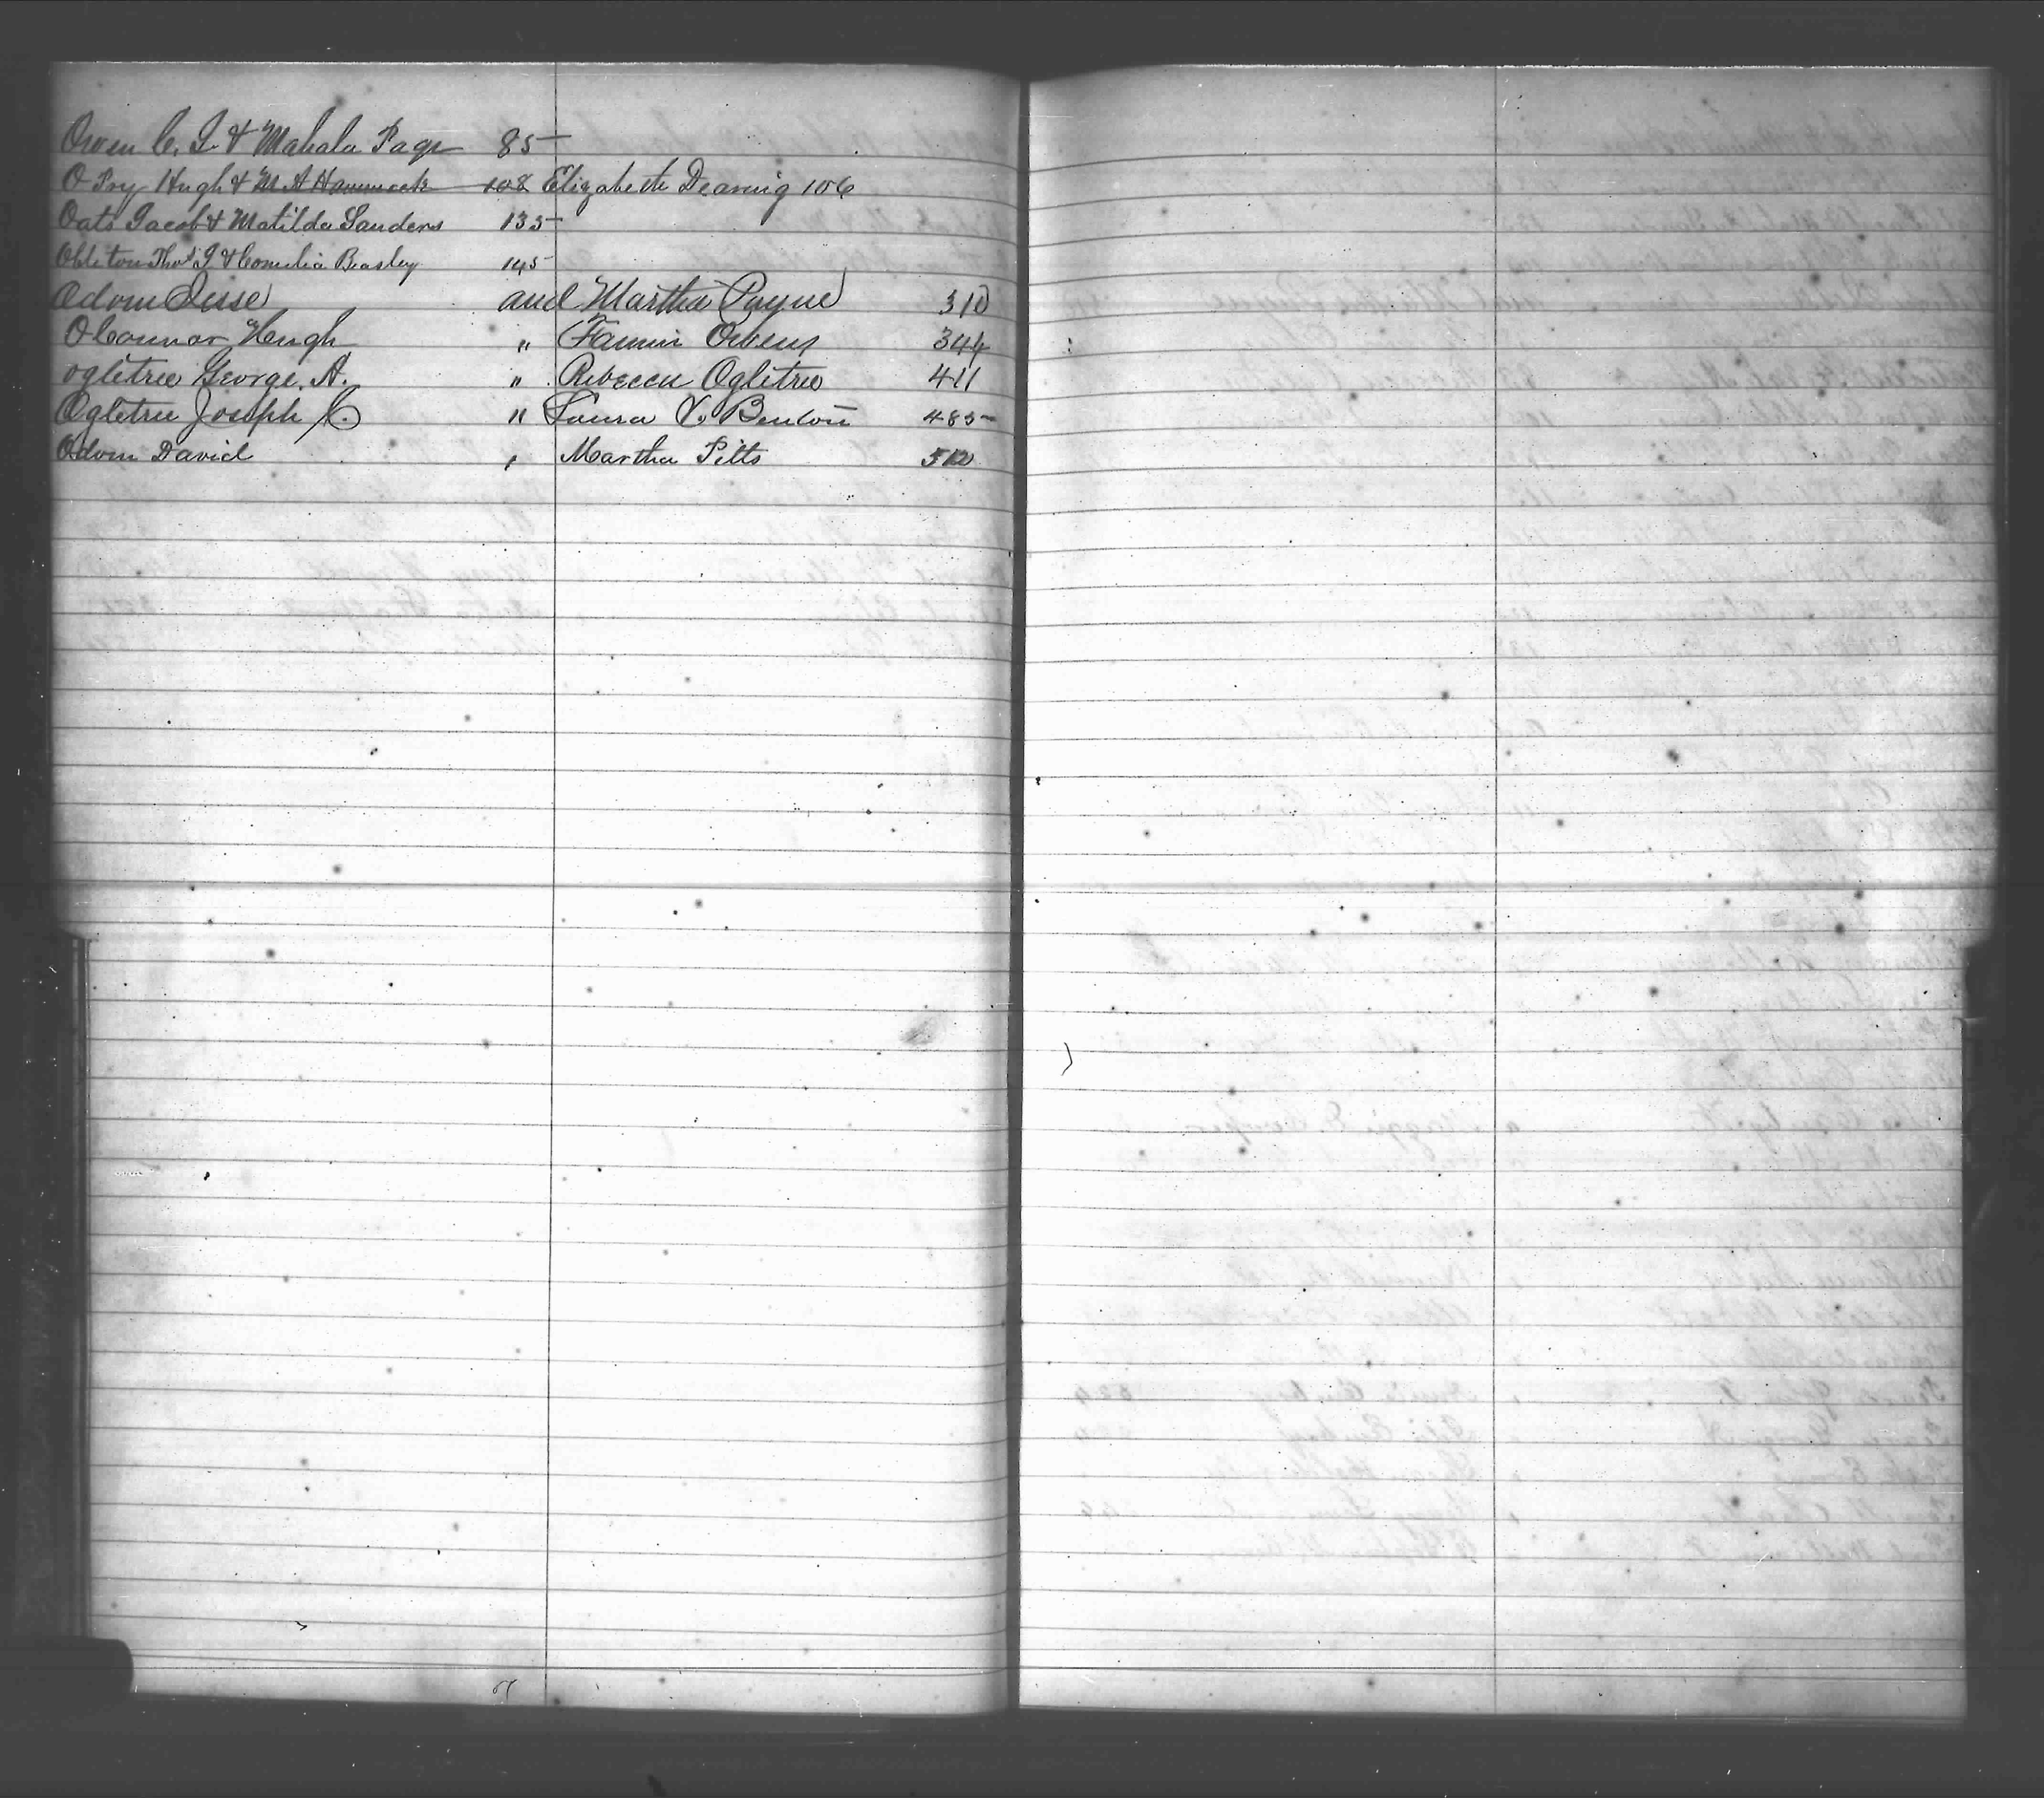 Owen C. J. & Mahala Page 85
O Pry Hugh & M A Hammock 108 Elizabeth Dearing 106
Oats Jacob & Matilda Sanders 135
Thos J & Cornelia Beasley 145
Odom Jesse and Martha Payne 310
OConnor Hugh " Fannie Owens 344
ogletree George. A. " Rebecca Ogletree 411
Ogletree Joseph C. " Laura V. Benton 485
Odom David " Martha Pitts